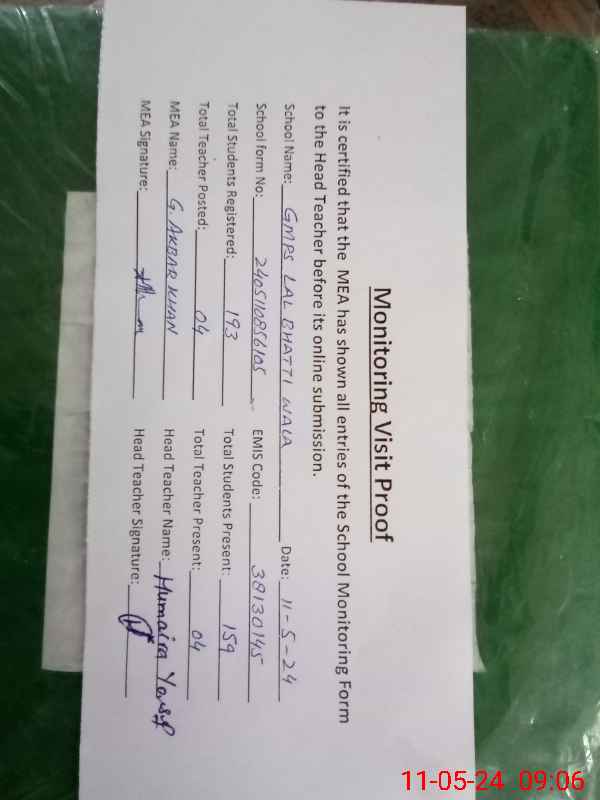 Monitoring Visit Proof
It is certified that the MEA has shown all entries of the School Monitoring Form
to the Head Teacher before its online submission.
School Name: GMPS LAL BHATTI WALA Date: 11-5-24
School form No: 2405110856105 EMIS Code: 38130145
Total Students Registered: 193 Total Students Present: 159
Total Teacher Posted: 04 Total Teacher Present: 04
MEA Name: G. AKBAR KHAN Head Teacher Name: Humaira Yousf
MEA Signature: Head Teacher Signature:
11-05-24 09:06